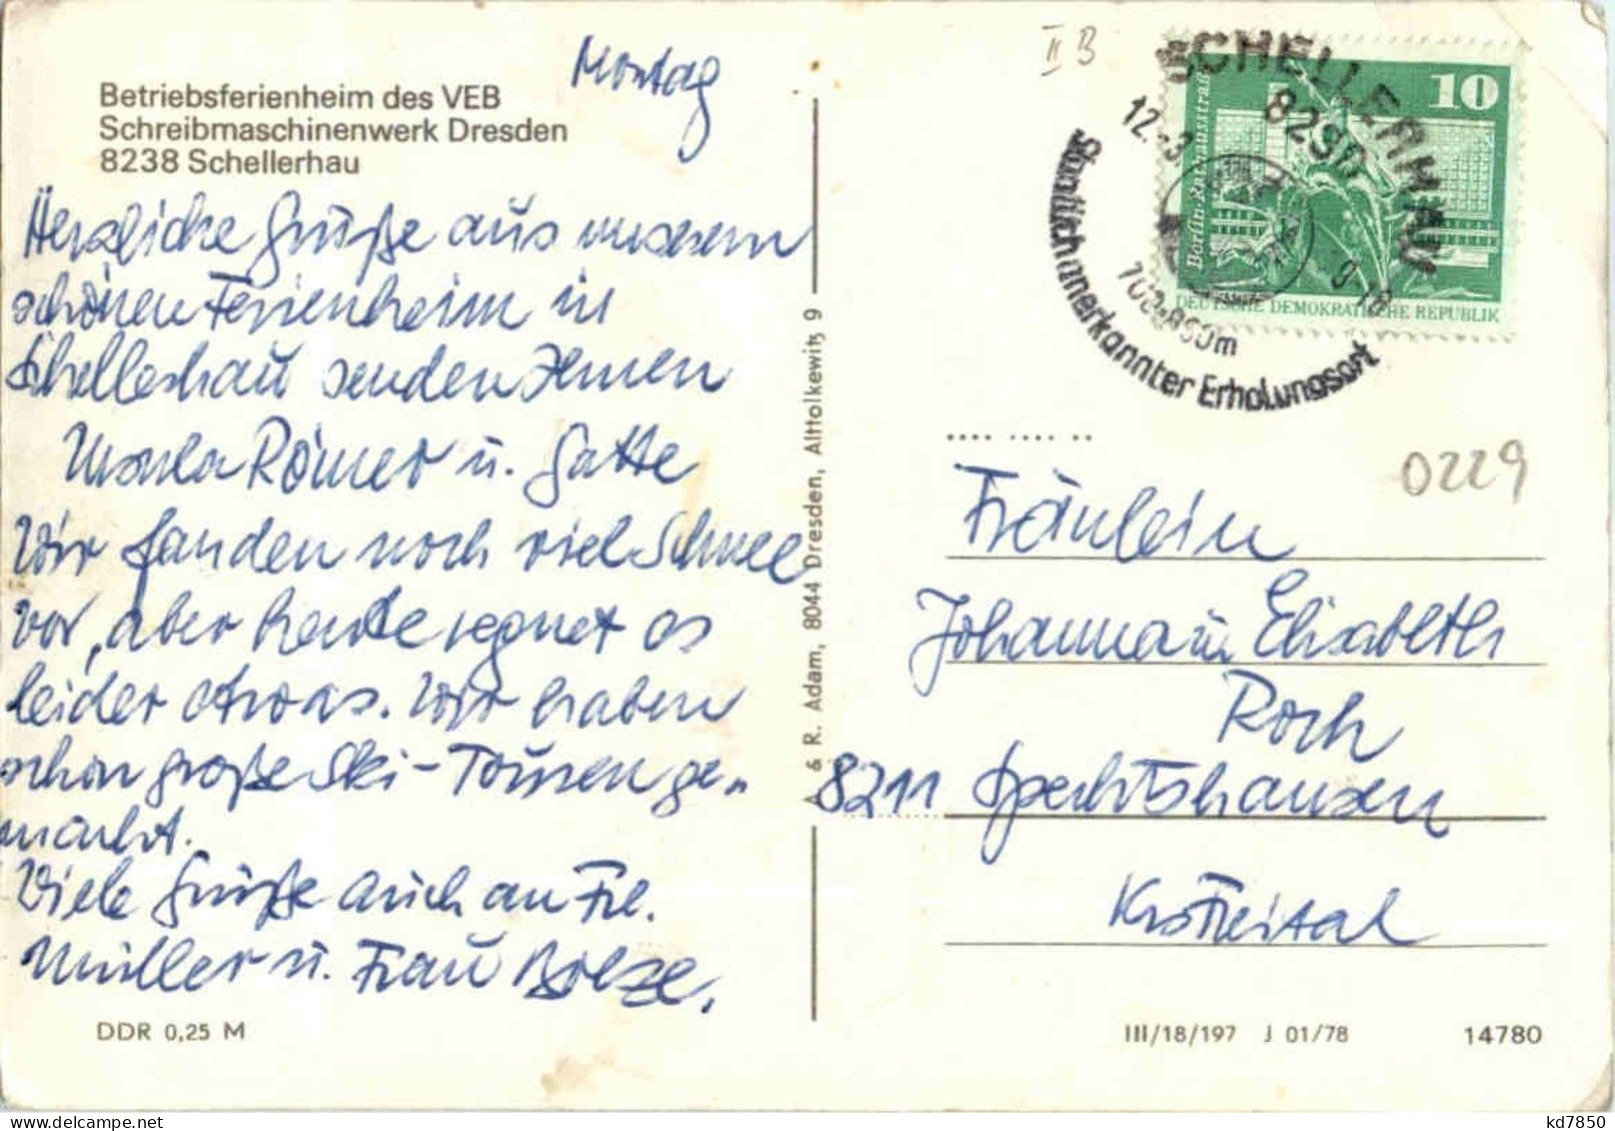 Betriebsferienheim des VEB
Schreibmaschinenwerk Dresden
8238 Schellerhau
Montag
Herzliche Grüße aus unserem
schönen Ferienheim in
Schellerhau senden Ihnen
Ursula Römer u. Gatte
Wir fanden noch viel Schnee
vor, aber heute regnet es
leider etwas. Wir haben
schon große Ski-Touren ge-
macht.
Viele Grüße auch an Frl.
Müller u. Frau Bolze.
DDR 0,25 M
A & R. Adam, 8044 Dresden, Alttolkewitz 9
II B
SCHELLERHAU
12.-3
Staatlich anerkannter Erholungsort
10
Berlin-Rathausstraße
DEUTSCHE DEMOKRATISCHE REPUBLIK
0229
Fräulein
Johanna u Elisabeth
Roch
8211 Spechtshausen
Krs Freital
III/18/197 J 01/78 14780
delcampe.net
kd7850